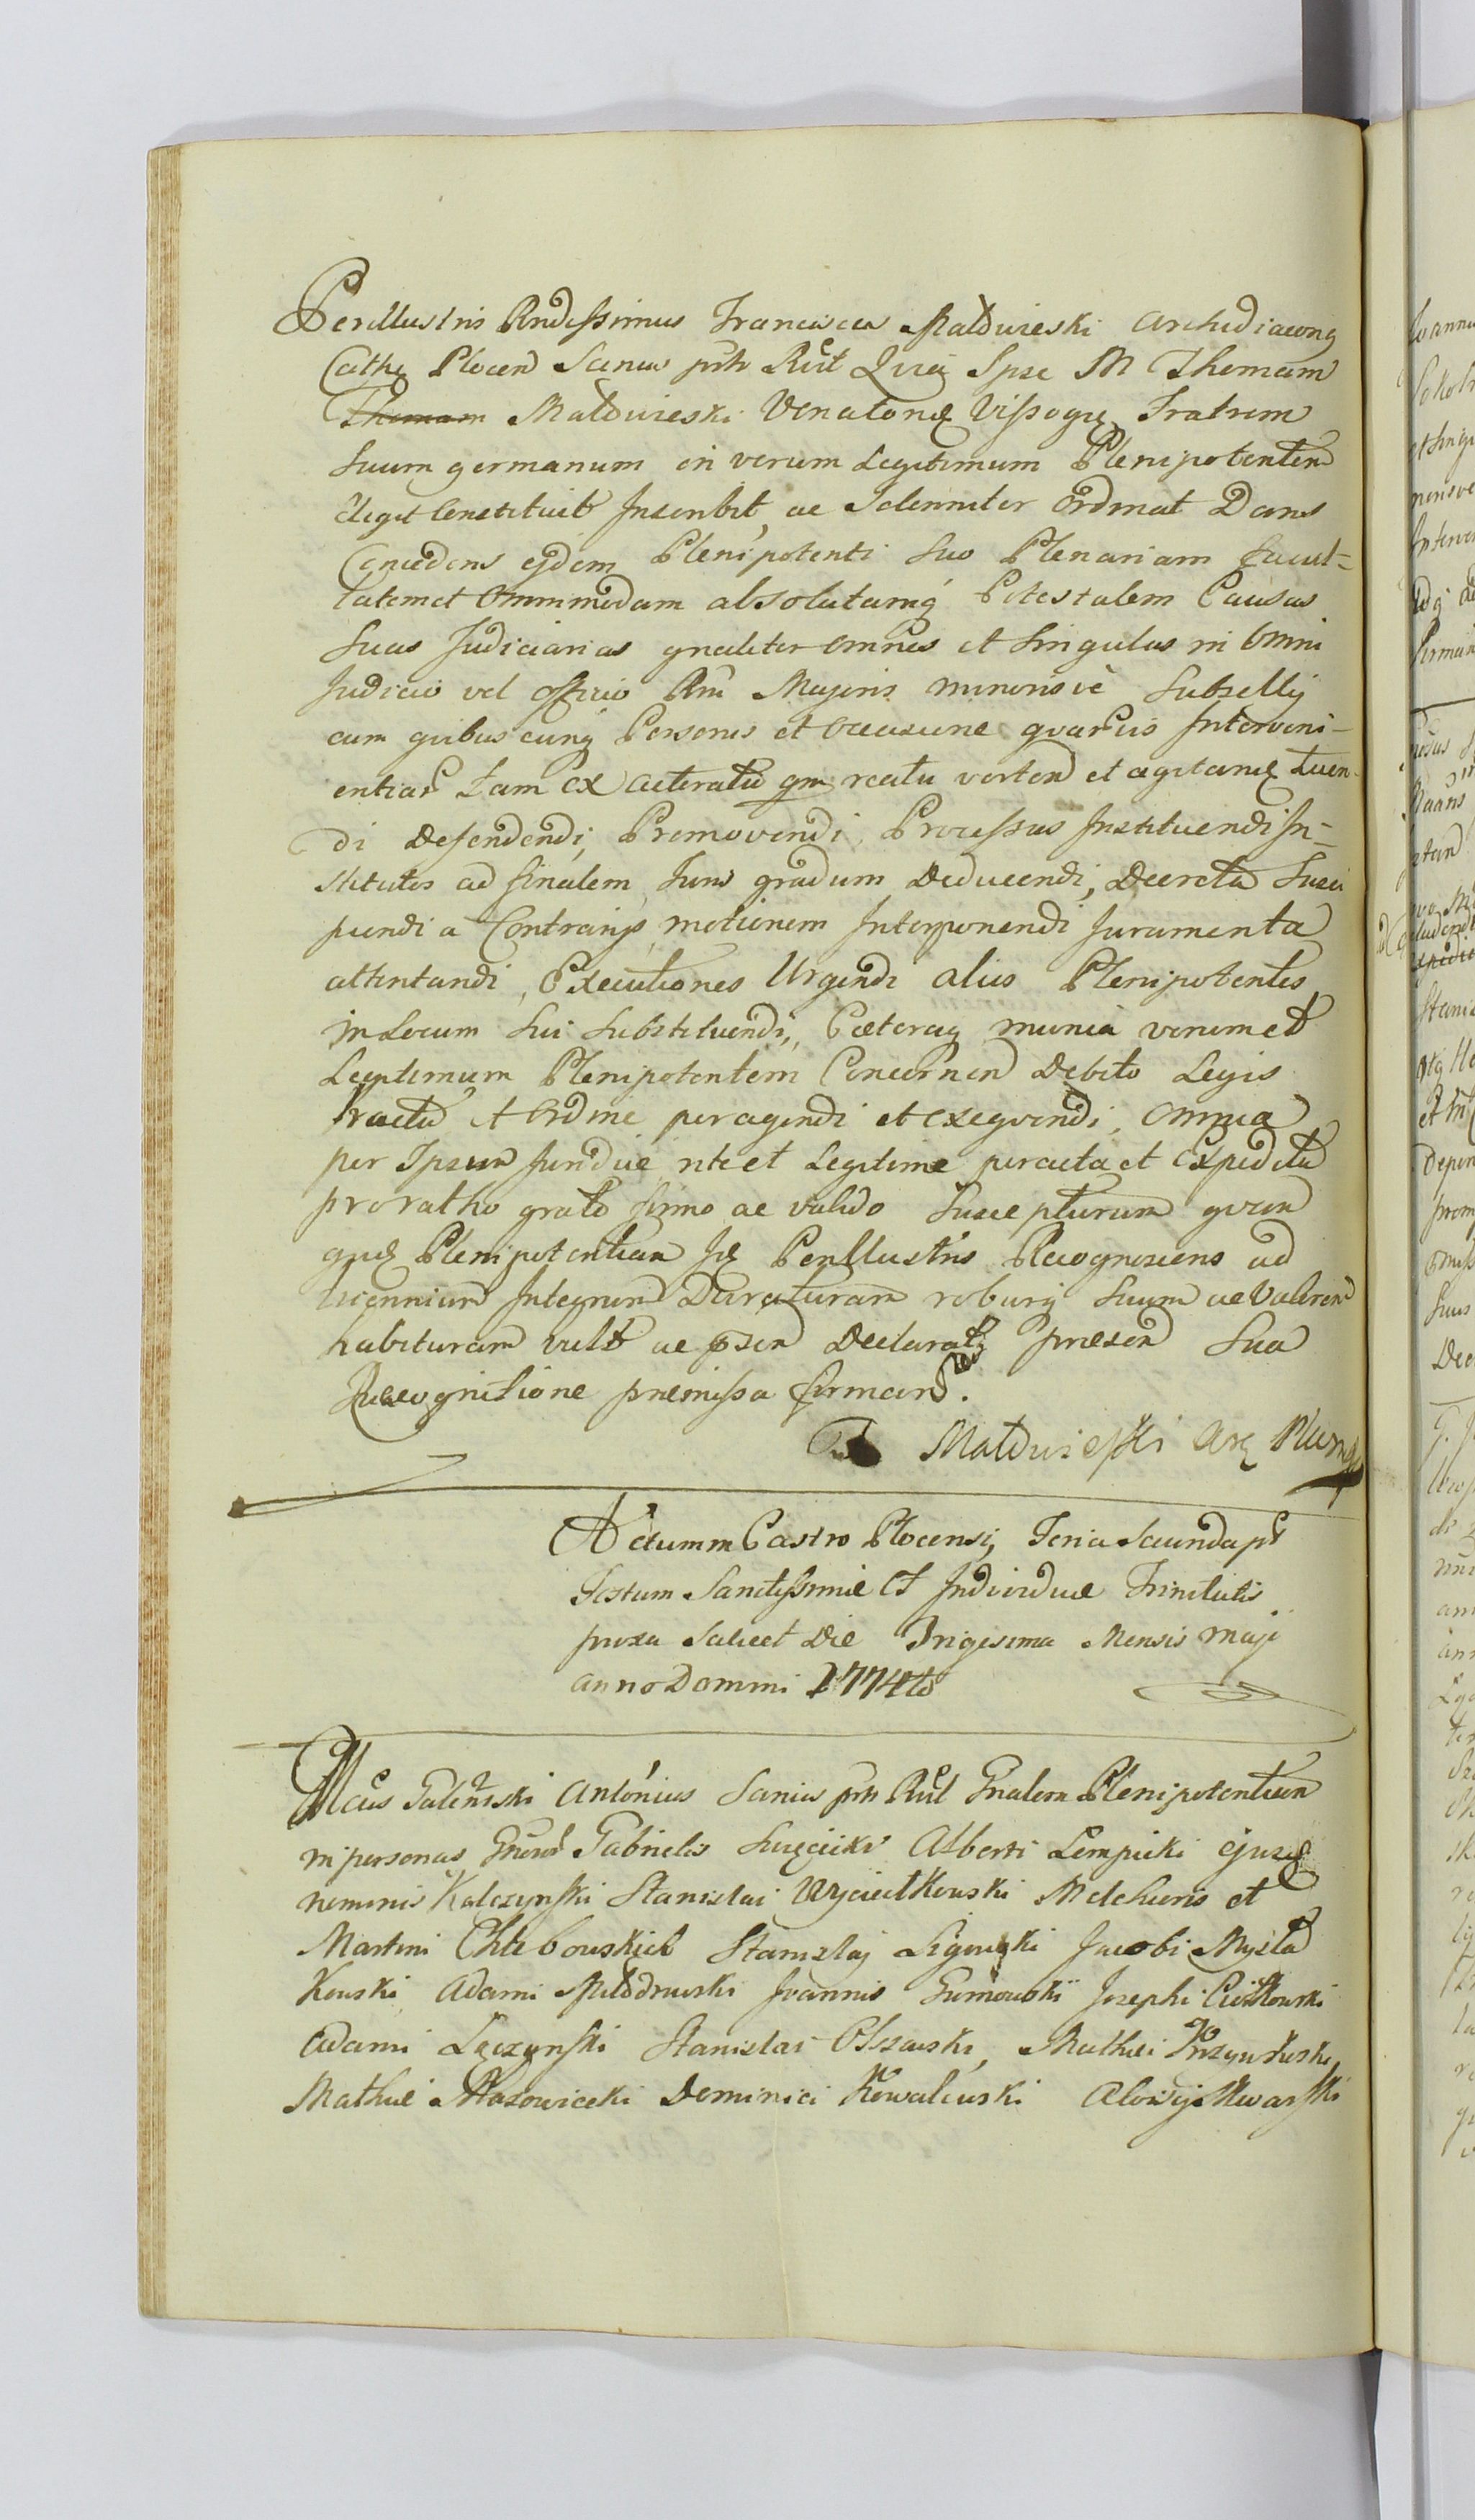 Perillustris Rndissimus Franciscus Małowieski Archidiaconq
Cathę Plocen Sanus prh Rut Quia Ipse M Thomam
Thomam Małowieski Venatorię Vissogrę Fratrem
Suum germanum in verum Legitimum Plenipotentem
elegit Constituit Inscribit, ac Solenniter ordinat Dans
Concedens ejdem Plenipotenti Suo Plenariam Facul=
tatem et Omnimodam absolutamq Potestatem Causas
Suas Judiciarias gnaliter omnes et Singulas in Omni
Judicio vel Officio Rni Majoris minorisvè Subsellij
cum quibuscunq Personis et occasione quarvis Interveni-
entiar Tam ex acteratu qm reatu verten et agitanę tuen-
di Defendendi, Promovendi, Processus Instituendi In-
stitutos ad finalem Juris gradum Deducendi, Decreta Susci
piendi a Contrarijs motionem Interponendi Juramenta
attentandi, Executiones Urgendi alios Plenipotentes
in Locum Sui Substituendi, Caeteraq munia verum et
Legitimum Plenipotentem Concernen Debito Legis
tractu et Ordine peragendi et exequendi, omnia
per Ipsum Jundvie rite et Legitime peracta et Expedita
pro ratho grato firmo ac valido Suscepturum quam
quę Plenipotentiam Ię Perillustris Recognoscens ad
triennium Integrum Duraturam roburq Suum ac Valorem
habituram vult ac psen Declarat praesen Sua
Recognitione praemissa firman.
Małowieski Arę Płocn
Actum in Castro Plocensi, Feria Secunda pt
Festum Sanctissimae et Individuae Trinitatis
proxa Scilicet Die Trigesima Mensis Maji
anno Domini 1774to
Mcus Galenski Antonius Sanus prh Rut Gnalem Plenipotentiam
in personas Gnror Gabrielis Święcicki Alberti Lempicki ejusę
nominis Kalczynski Stanislai Woyciechkowski Melchioris et
Martini Chlebowskich Stanislaj Ligowski Jacobi Mysła
kowski Adami Młodzowski Joannis Gumowski Josephi Ciołkowski
Adami Łączynski Stanislai Olszewski, Mathei Krzywkoski
Mathaei Mazowiecki Dominici Kowalewski Aloysij Skwarski